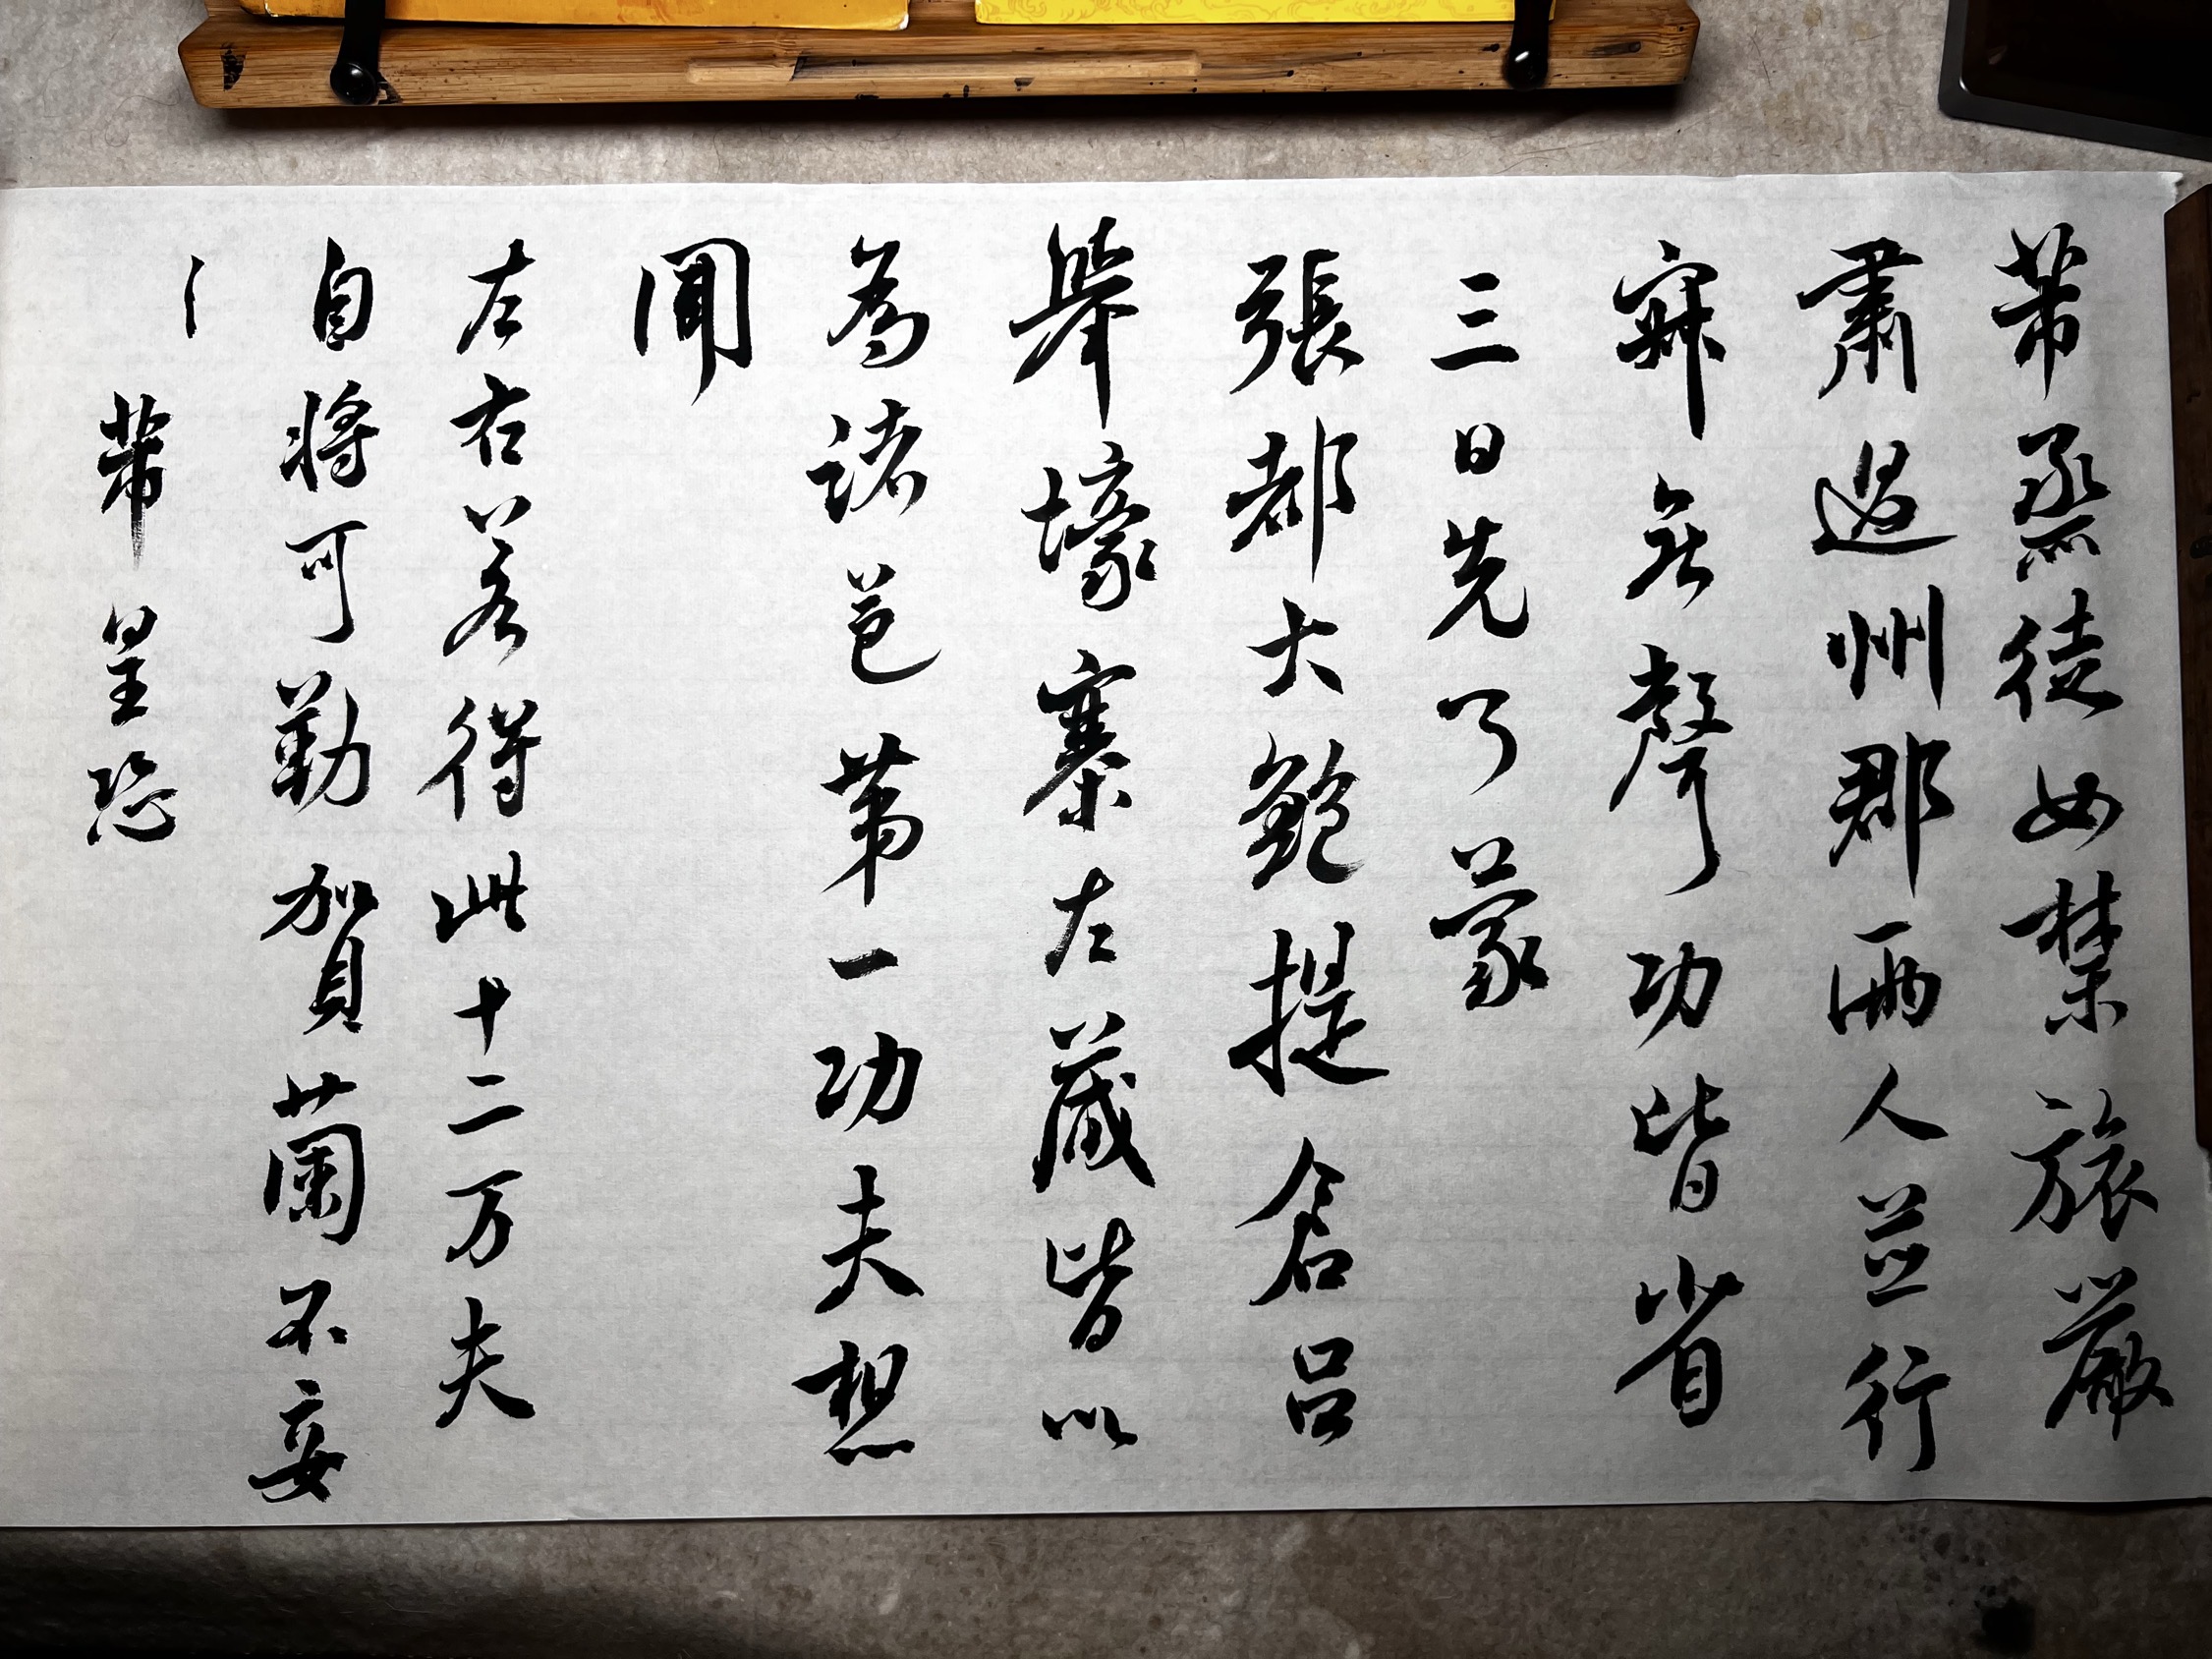 芾烝徒如禁旅嚴
肅過州郡兩人並行
寐無聲功皆省
三日先了蒙
張都大鮑提倉呂
舉壕寨左藏皆以
為諸邑第一功夫想
聞
左右若得此十二万夫
自將可勤賀蘭不妄
芾皇恐